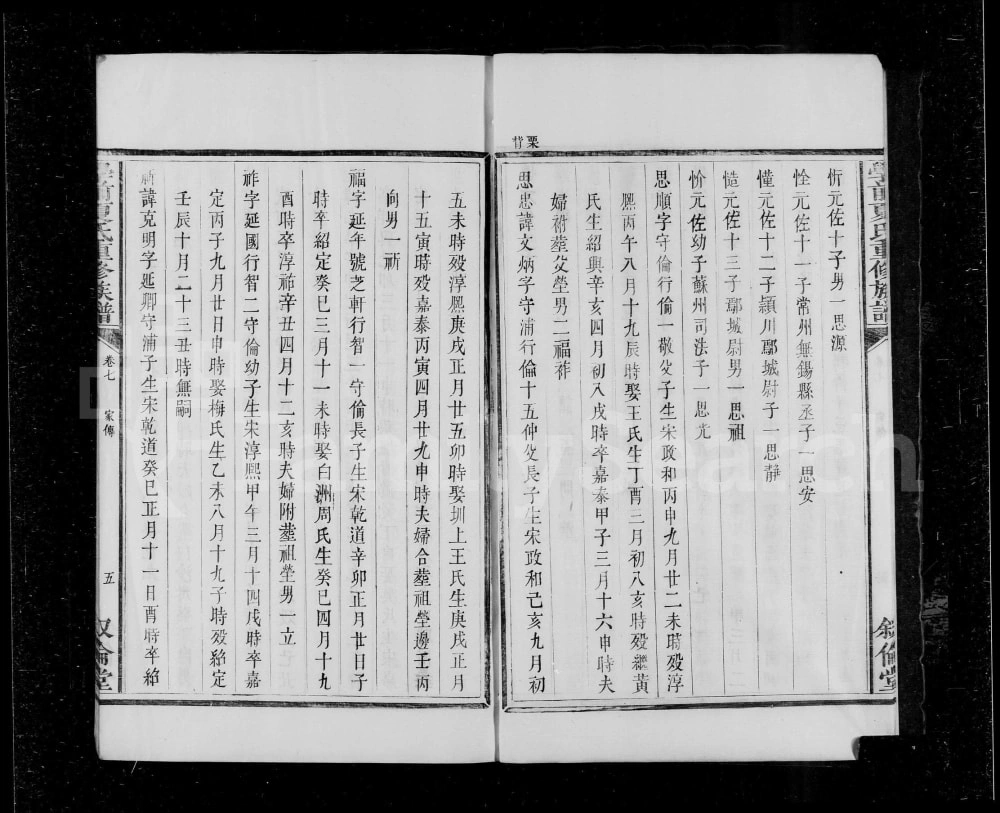 栗背
忻元佐十子男一思源
恮元佐十一子常州無錫縣丞子一思安
慬元佐十二子潁川郾城尉子一思靜
愭元佐十三子郾城尉男一思祖
忦元佐幼子蘇州司法子一思光
思順字守倫行倫一敬父子生宋政和丙申九月廿二未時歿淳
熙丙午八月十九辰時娶王氏生丁酉三月初八亥時歿繼黃
氏生紹興辛亥四月初八戌時卒嘉泰甲子三月十六申時夫
婦祔塟父塋男二福祚
思忠諱文炳字守浦行倫十五仲父長子生宋政和己亥九月初
五未時歿淳熙庚戌正月廿五卯時娶圳上王氏生庚戌正月
十五寅時歿嘉泰丙寅四月廿九申時夫婦合塟祖塋邊壬丙
向男一祈
福字延年號芝軒行智一守倫長子生宋乾道辛卯正月廿日子
時卒紹定癸巳三月十一未時娶白洲周氏生癸巳四月十九
酉時卒淳祐辛丑四月十二亥時夫婦附塟祖塋男一立
祚字延國行智二守倫幼子生宋淳熙甲午三月十四戌時卒嘉
定丙子九月廿日申時娶梅氏生乙未八月十九子時歿紹定
壬辰十月二十三丑時無嗣
祈諱克明字延卿守浦子生宋乾道癸巳正月十一日酉時卒紹
氏重修族譜
卷七
家傳
五
敘倫堂